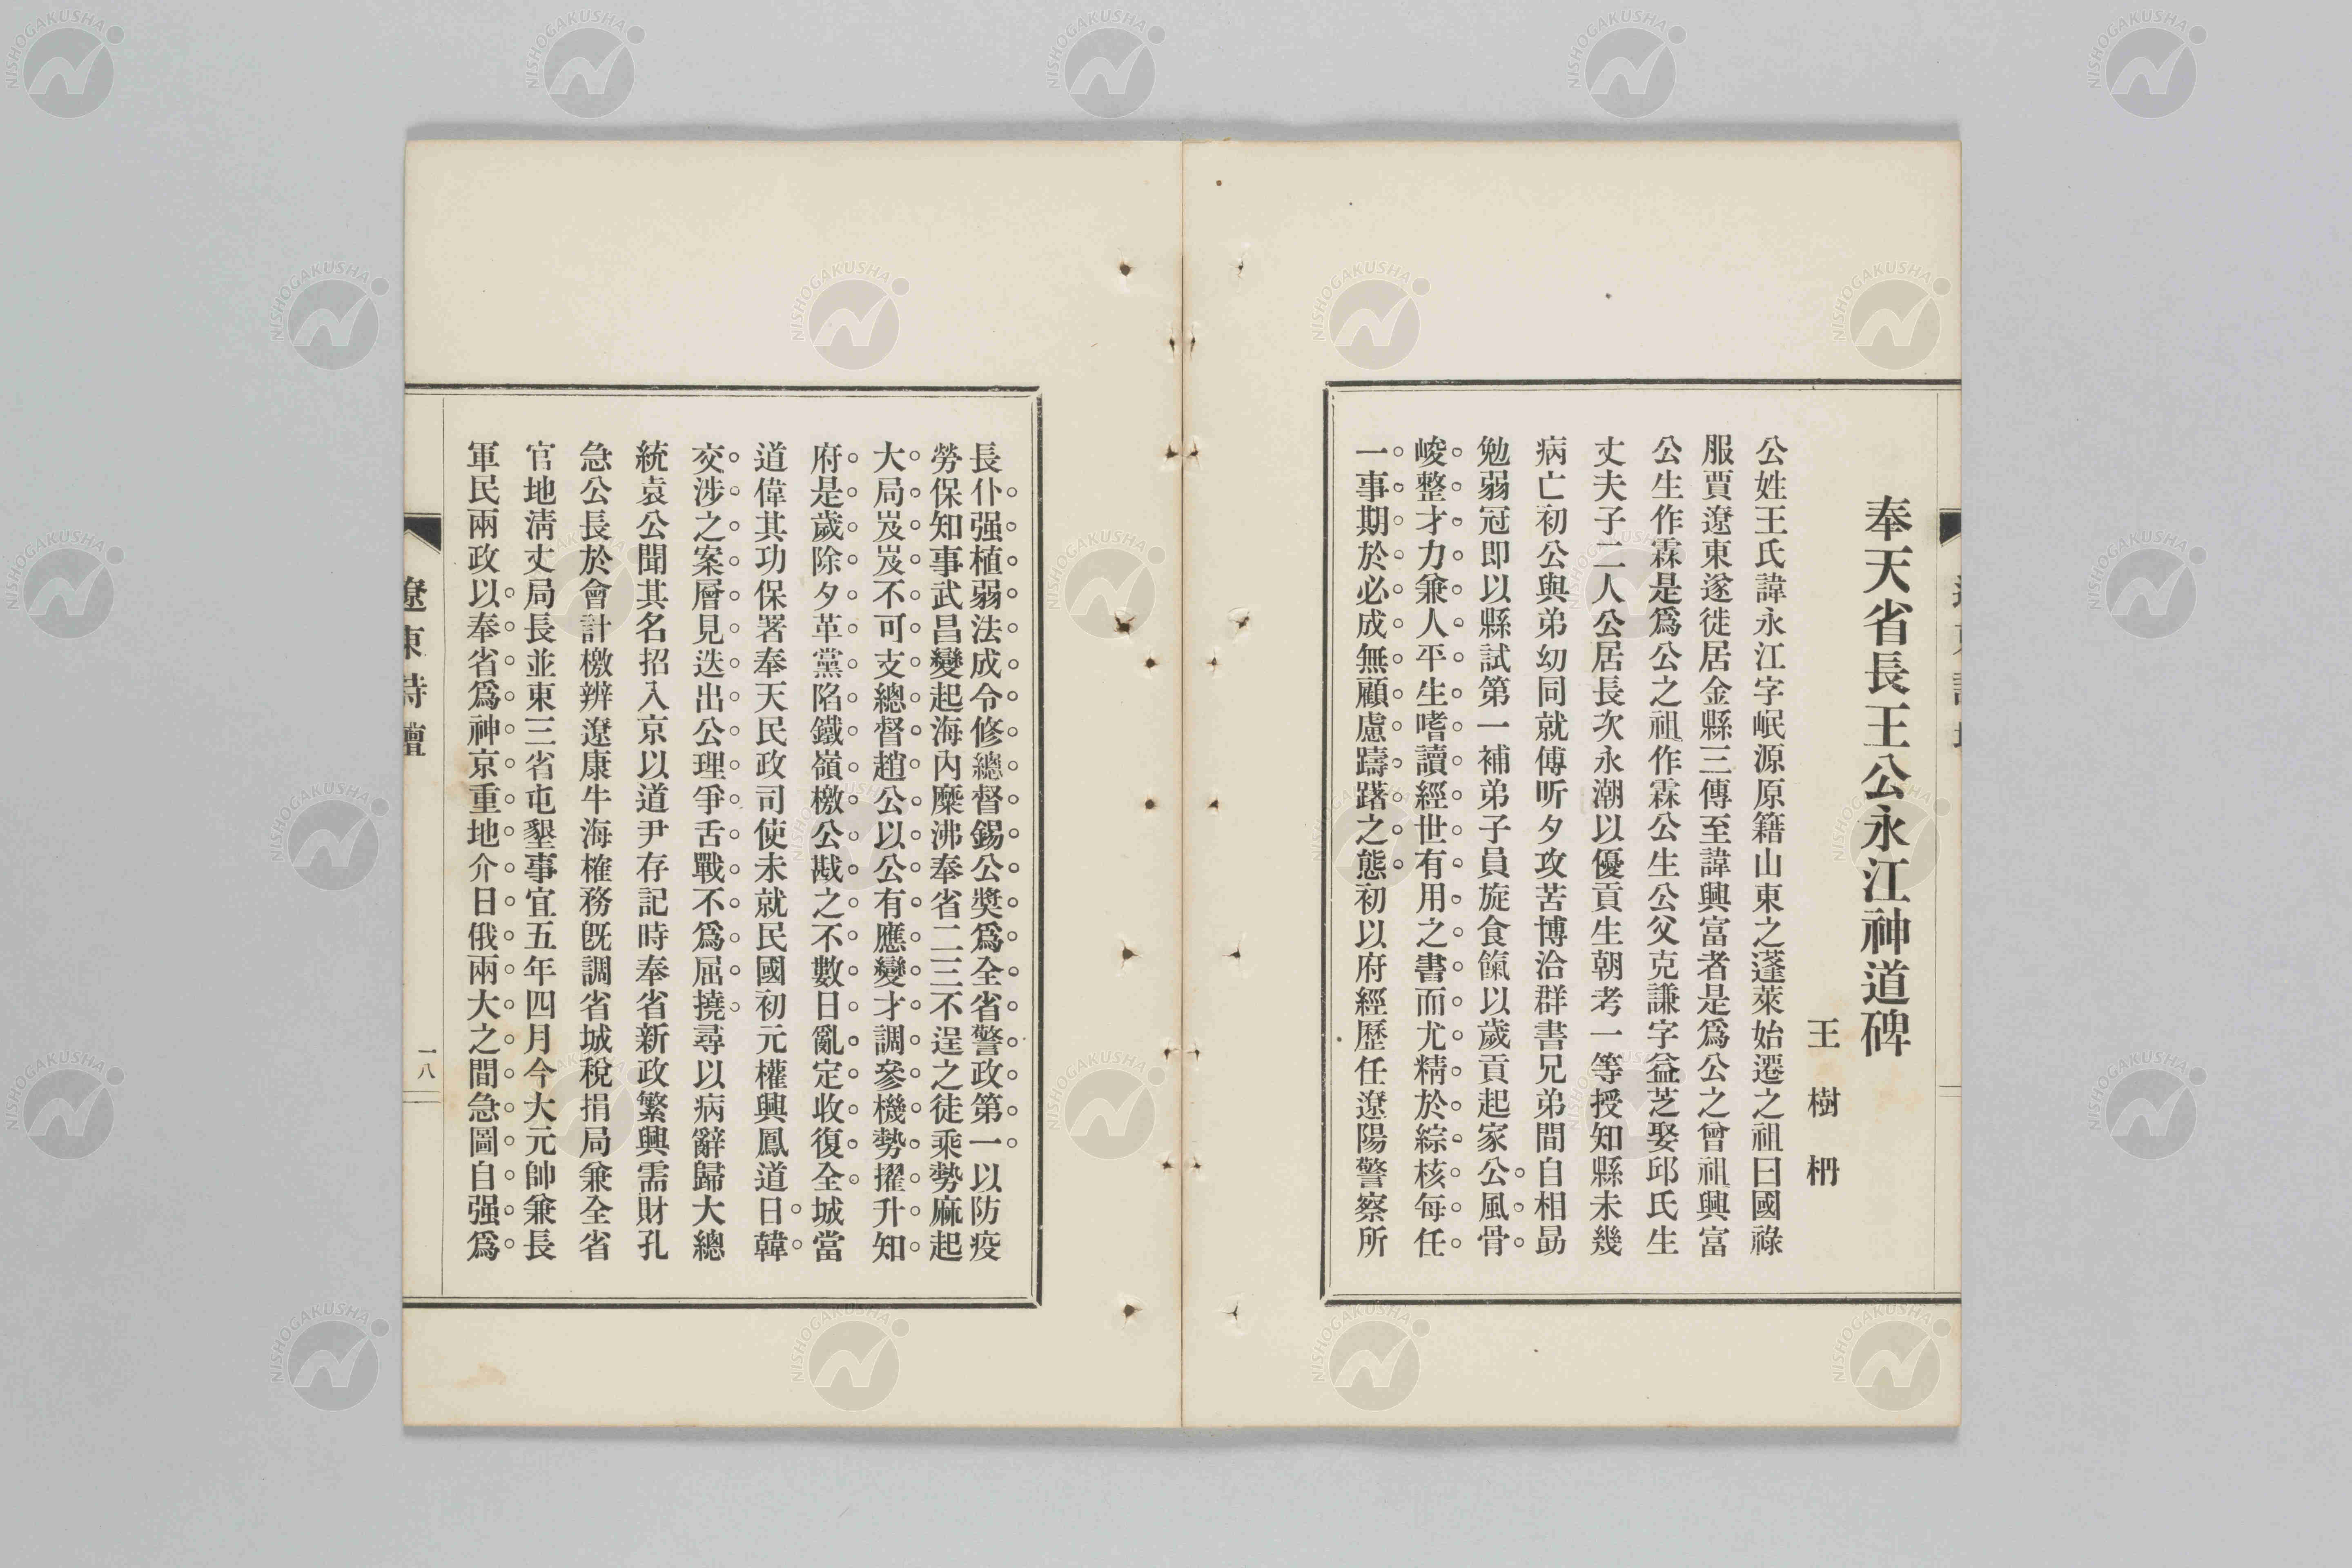 奉天省長王公永江神道碑
王樹枬
公姓王氏諱永江字岷源原籍山東之蓬萊始遷之祖曰國祿
服賈遼東遂徙居金縣三傳至諱興富者是爲公之曾祖興富
公生作霖是爲公之祖作霖公生公父克謙字益芝娶邱氏生
丈夫子二人公居長次永潮以優貢生朝考一等授知縣未幾
病亡初公與弟幼同就傅昕夕攻苦博洽群書兄弟間自相勗
勉弱冠即以縣試第一補弟子員旋食餼以歲貢起家公風骨
峻整才力兼人平生嗜讀經世有用之書而尤精於綜核每任
一事期於必成無顧慮躊躇之態初以府經歷任遼陽警察所
長仆强植弱法成令修總督錫公奬爲全省警政第一以防疫
勞保知事武昌變起海內糜沸奉省二三不逞之徒乘勢麻起
大局岌岌不可支總督趙公以公有應變才調參機勢擢升知
府是歲除夕革黨陷鐵嶺檄公戡之不數日亂定收復全城當
道偉其功保署奉天民政司使未就民國初元權興鳳道日韓
交涉之案層見迭出公理爭舌戰不爲屈撓尋以病辭歸大總
統袁公聞其名招入京以道尹存記時奉省新政繁興需財孔
急公長於會計檄辨遼康牛海榷務旣調省城稅捐局兼全省
官地淸丈局長並東三省屯墾事宜五年四月今大元帥兼長
軍民兩政以奉省爲神京重地介日俄兩大之間急圖自强爲
遼東詩壇
一八
NISHOGAKUSHA